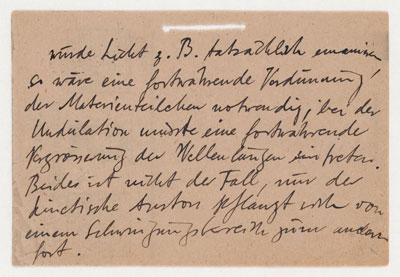 würde Licht z. B. tatsächlich emaniren
so wäre eine fortwährende Verdünnung
der Materienteilchen notwendig, bei der
Undulation müsste eine fortwährende
Vergrösserung der Wellenlängen eintreten.
Beides ist nicht der Fall, nur der
kinetische Anstoss pflanzt sich von
einem Schwingungsbereich zum andern
fort.